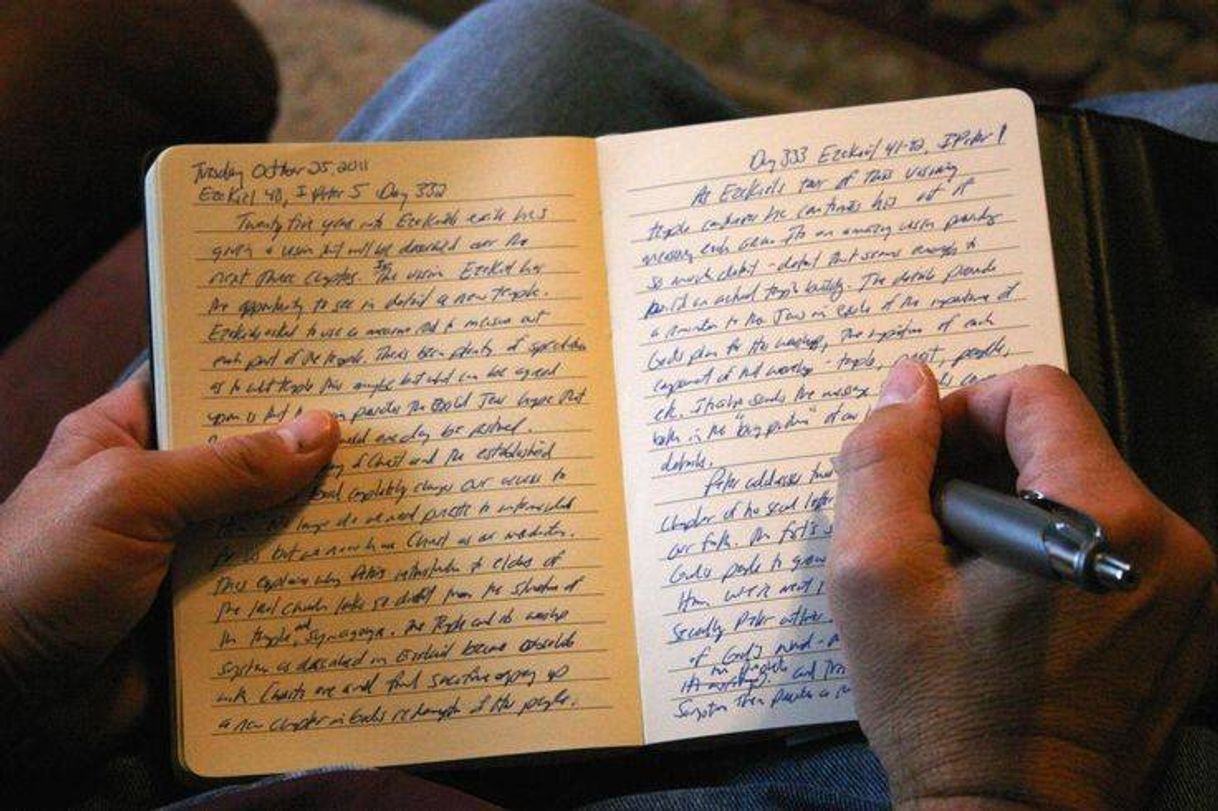 Tuesday October 25 2011
Ezekiel 40, I Peter 5 Day 332
Twenty five years into Ezekiel's exile he's
given a vision that will be described over the
next three chapters. In this vision Ezekiel has
the opportunity to see in detail a new temple.
Ezekiel's asked to use a measure rod to measure out
each part of the temple. There's been plenty of speculation
as to what temple this maybe but what can be agreed
upon is that provides the exiled Jews hope that
one day be restored.
of Christ and the established
completely changes our access to
longer do we need priests to
for us but we now have Christ as our mediator.
This explains why Peter's to elders of
the church looks so different from the structure of
the temple and synagogue. The temple and its worship
system as described in Ezekiel became obsolete
with Christ's one and final sacrifice
a new chapter in God's redemption of His people.
Day 333 Ezekiel 41-42, I Peter 1
As Ezekiel's tour of this visionary
temple continues he continues his out of it
measuring each area. It's an amazing vision providing
so much detail - detail that seems enough to
build an actual temple building. The details provide
a reminder to the Jews in exile of the importance of
God's plan for His worship, the importance of each
component of that worship - temple, people,
etc. It also sends the message
both in the "big picture" of our
details.
Peter addresses two
chapter of his second letter
our faith. The first is
God's people to grow
Him, where we
Secondly Peter
of God's word -
the prophets
Scripture then provides